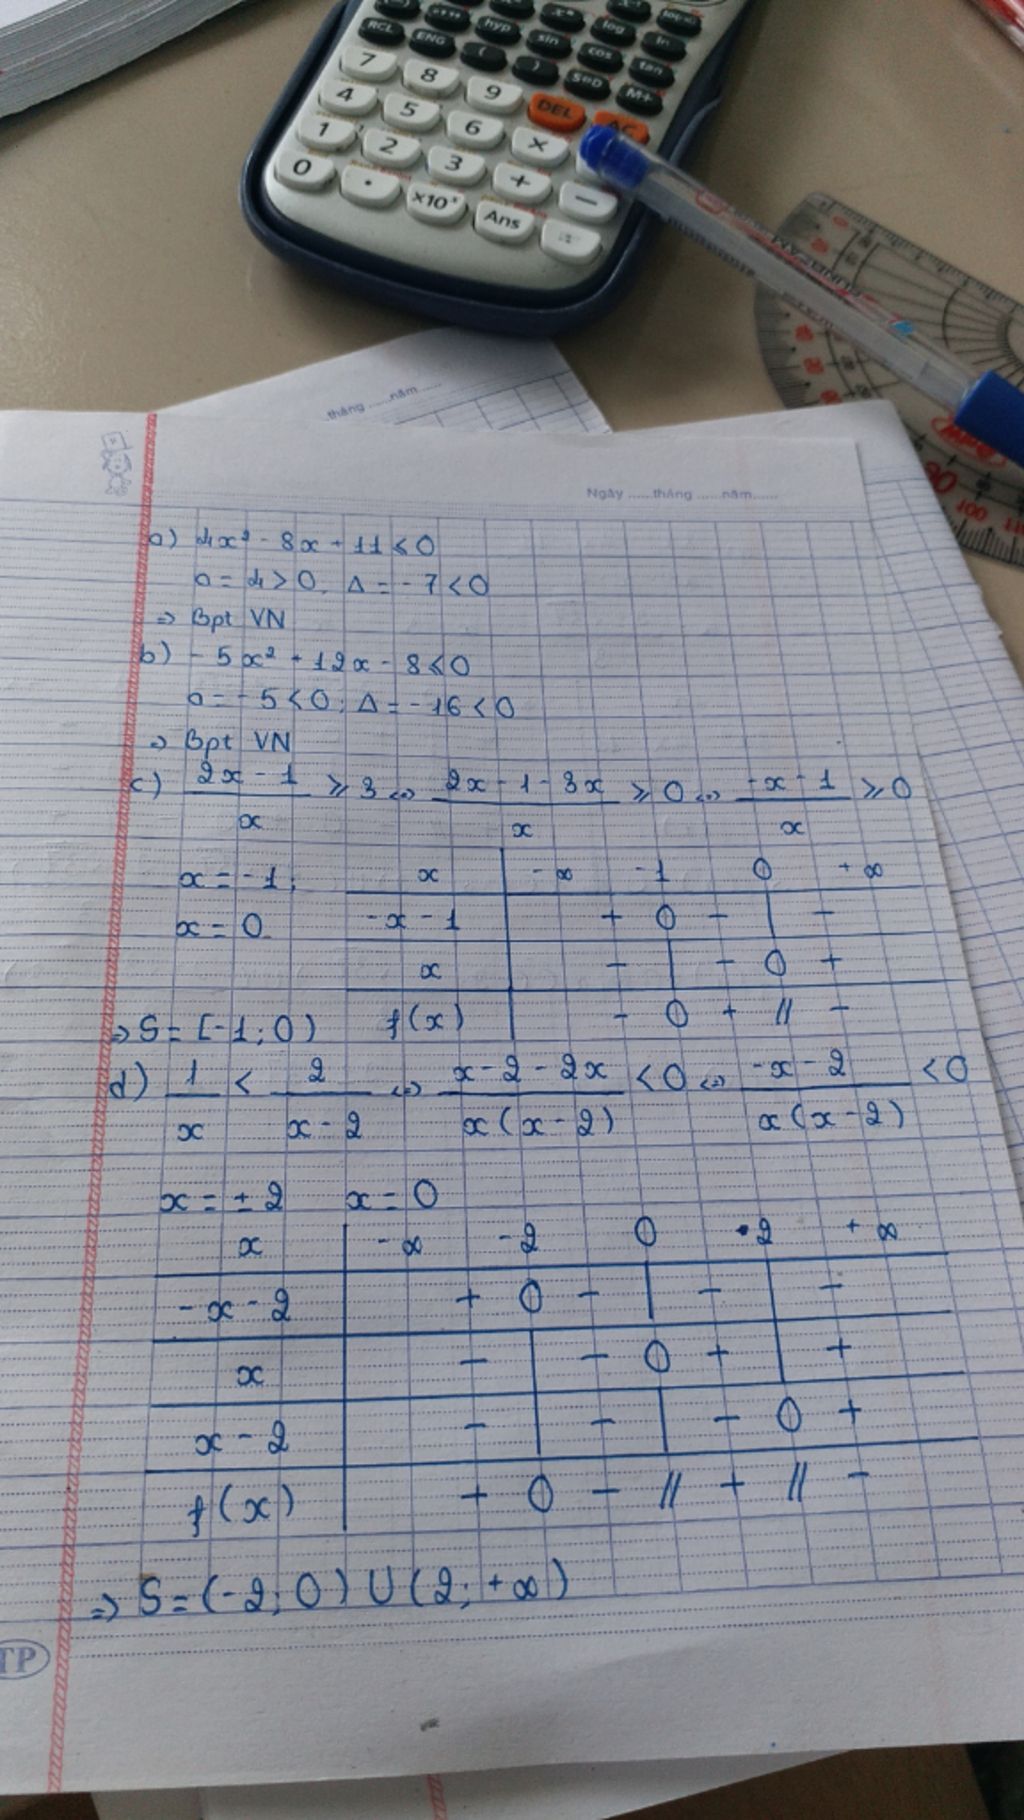 RCL ENG hyp sin cos tan
( ) S⇔D M+
log ln
7 8 9 DEL AC
4 5 6 ×
1 2 3 + −
0 . ×10ˣ Ans =
tháng ......năm......
Ngày ......tháng ......năm......
a) 4x² - 8x + 11 < 0
a = 4 > 0, Δ = - 7 < 0
⇒ Bpt VN
b) - 5x² + 12x - 8 < 0
a = - 5 < 0 ; Δ = - 16 < 0
⇒ Bpt VN
c) (2x - 1)/x ⩾ 3 ⇔ (2x - 1 - 3x)/x ⩾ 0 ⇔ (-x - 1)/x ⩾ 0
x = -1 ;
x = 0
x | -∞ -1 0 +∞
-x - 1 | + 0 - | -
x | - | - 0 +
f(x) | - 0 + || -
⇒ S = [-1 ; 0)
d) 1/x < 2/(x - 2) ⇔ (x - 2 - 2x)/(x(x - 2)) < 0 ⇔ (-x - 2)/(x(x - 2)) < 0
x = ± 2 x = 0
x | -∞ -2 0 2 +∞
-x - 2 | + 0 - | - | -
x | - | - 0 + | +
x - 2 | - | - | - 0 +
f(x) | + 0 - || + || -
⇒ S = (-2 ; 0) U (2 ; +∞)
TP